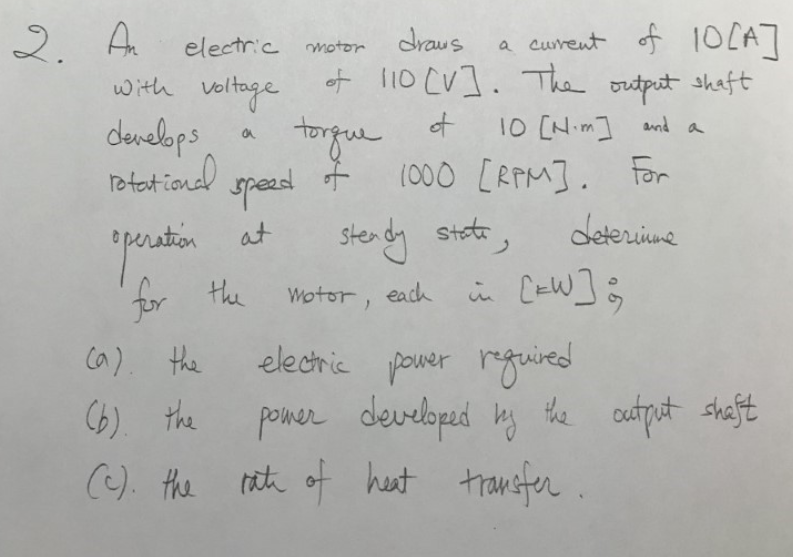 2. An electric motor draws a current of 10[A]
with voltage of 110 [V]. The output shaft
develops a torque of 10 [N·m] and a
rotational speed of 1000 [RPM]. For
operation at steady state, determine
for the motor, each in [kW];
(a). the electric power required
(b). the power developed by the output shaft
(c). the rate of heat transfer.